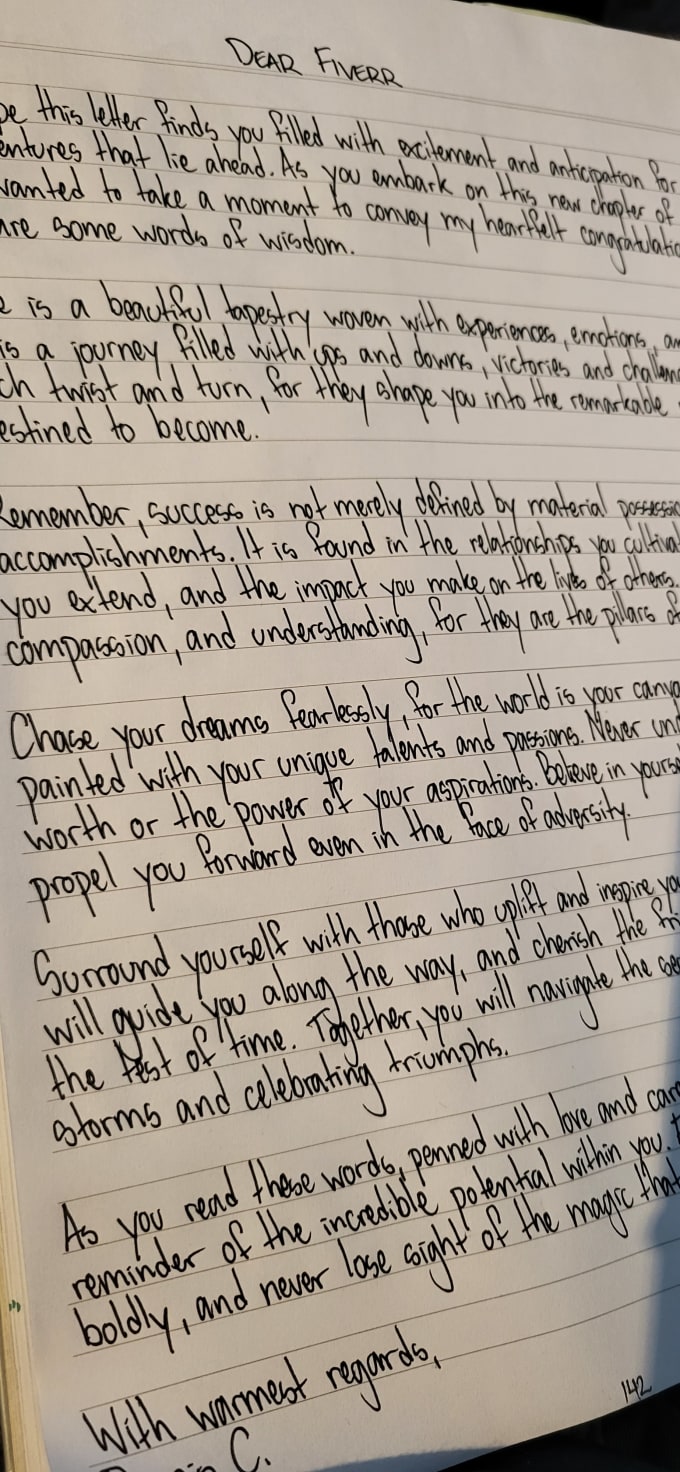 DEAR FIVERR
pe this letter finds you filled with excitement and anticipation for
entures that lie ahead. As you embark on this new chapter of
wanted to take a moment to convey my heartfelt congratulatio
are some words of wisdom.
e is a beautiful tapestry woven with experiences, emotions, an
is a journey filled with ups and downs, victories and challeng
ch twist and turn, for they shape you into the remarkable
estined to become.
Remember, success is not merely defined by material possessio
accomplishments. It is found in the relationships you cultivat
you extend, and the impact you make on the lives of others.
compassion, and understanding, for they are the pillars of
Chase your dreams fearlessly, for the world is your canva
painted with your unique talents and passions. Never und
worth or the power of your aspirations. Believe in yourse
propel you forward even in the face of adversity.
Surround yourself with those who uplift and inspire yo
will guide you along the way, and cherish the fri
the test of time. Together, you will navigate the
storms and celebrating triumphs.
As you read these words, penned with love and care
reminder of the incredible potential within you.
boldly, and never lose sight of the magic that
With warmest regards,
C.
142